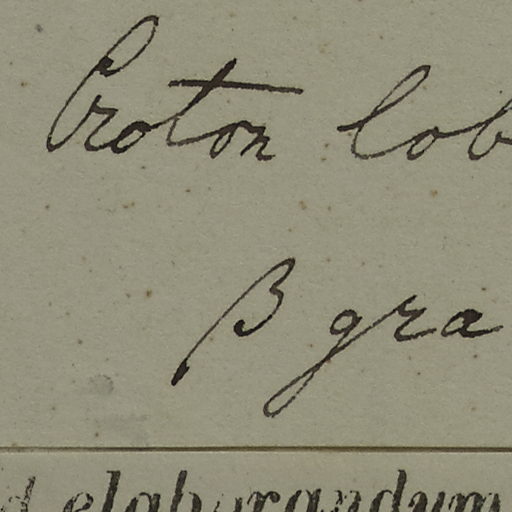 Croton lob
β gra
d elaborandum